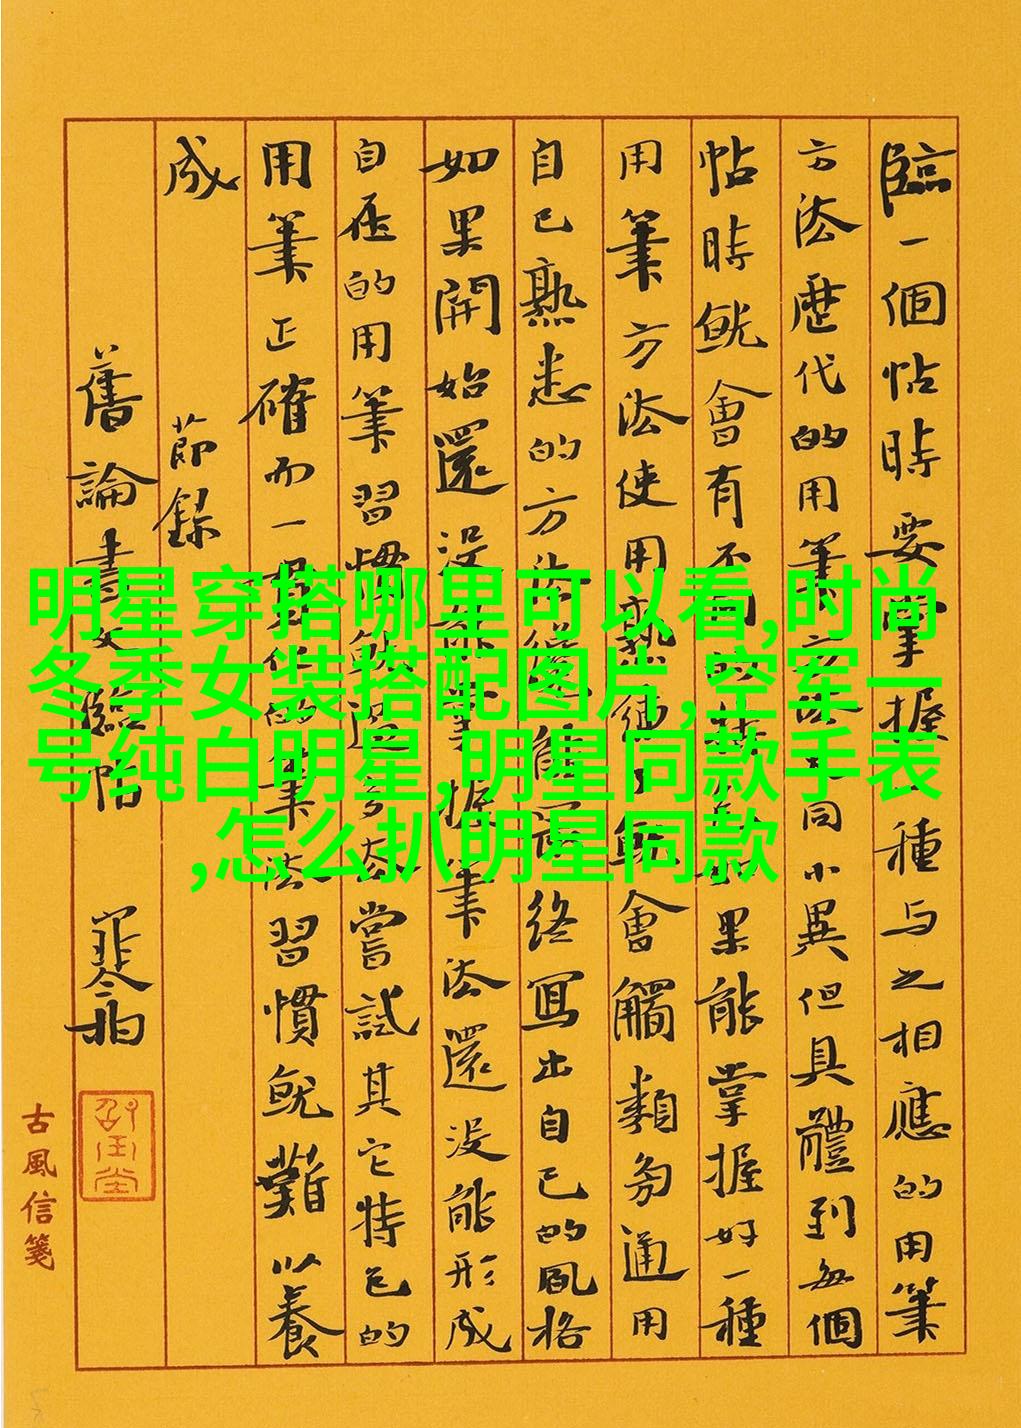 臨一個帖時要掌握種与之相應的用筆
方法歷代的用筆方法大同小異但具體到每個
帖時就會有不同的特點如果能掌握好一種
用筆方法使用熟練了就會觸類旁通用
自己熟悉的方法能終寫出自己的風格
如果開始還沒有掌握筆法還沒能形成
自在的用筆習慣就過多去嘗試其它特色的
用筆正確而一的筆法習慣就難以養
成 節錄
舊論書文臨帖
古風信箋
明星穿搭哪里可以看,时尚
冬季女装搭配图片,空军一
号纯白明星,明星同款手表
,怎么扒明星同款